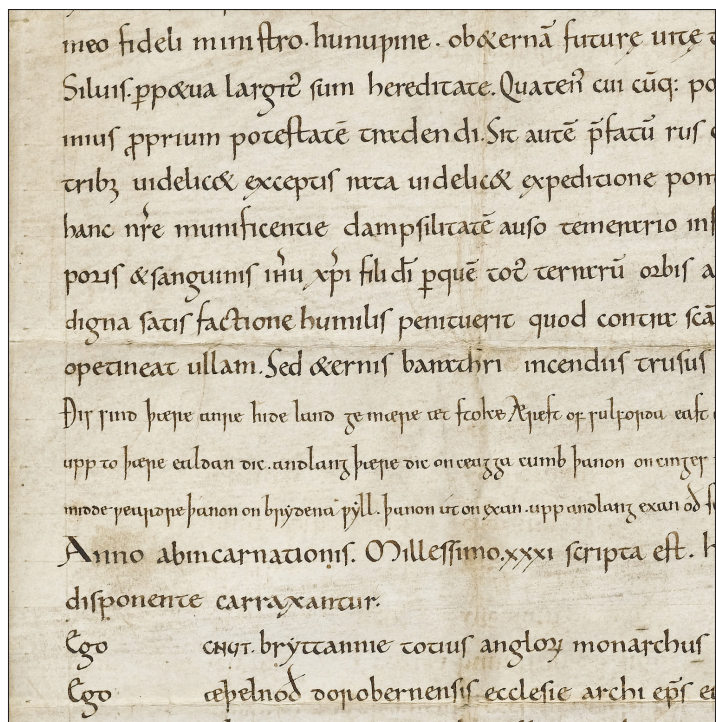 meo fideli ministro. hunuƿine. ob &ernā future uite
Siluis. ꝑp&ua largit᷒ sum hereditate. Quaten̄ cui cūq: po
mius ꝓprium potestatē tradendi. Sit autē p̄fatū rus
tribꝫ uidelic& exceptis rata uidelic& expeditione pon
hanc nr̄e munificentie dampsilitatē auso temerario inf
poris &sanguinis ih̄u xp̄i filii dī ꝑquē tot᷒ terrarū orbis a
digna satis factione humilis penituerit quod contra scā
opetineat ullam. Sed &ernis barathri incendiis trusus
Ðis sind þære anre hide land ge mære æt stoke Ærest of fulforda east
upp to þære ealdan dic. andlang þære dic on ceagga cumb þanon on cinges
midde ƿeardne þanon on brydena ƿyll. þanon ut on exan. upp andlang exan oð
Anno ab incarnationis. Millessimo. xxxi scripta est. h
disponente carraxantur.
Ego CNUT. bryttannie totius angloꝝ monarchus
Ego æþelnoð dorobernensis ecclesie archi ep̄s